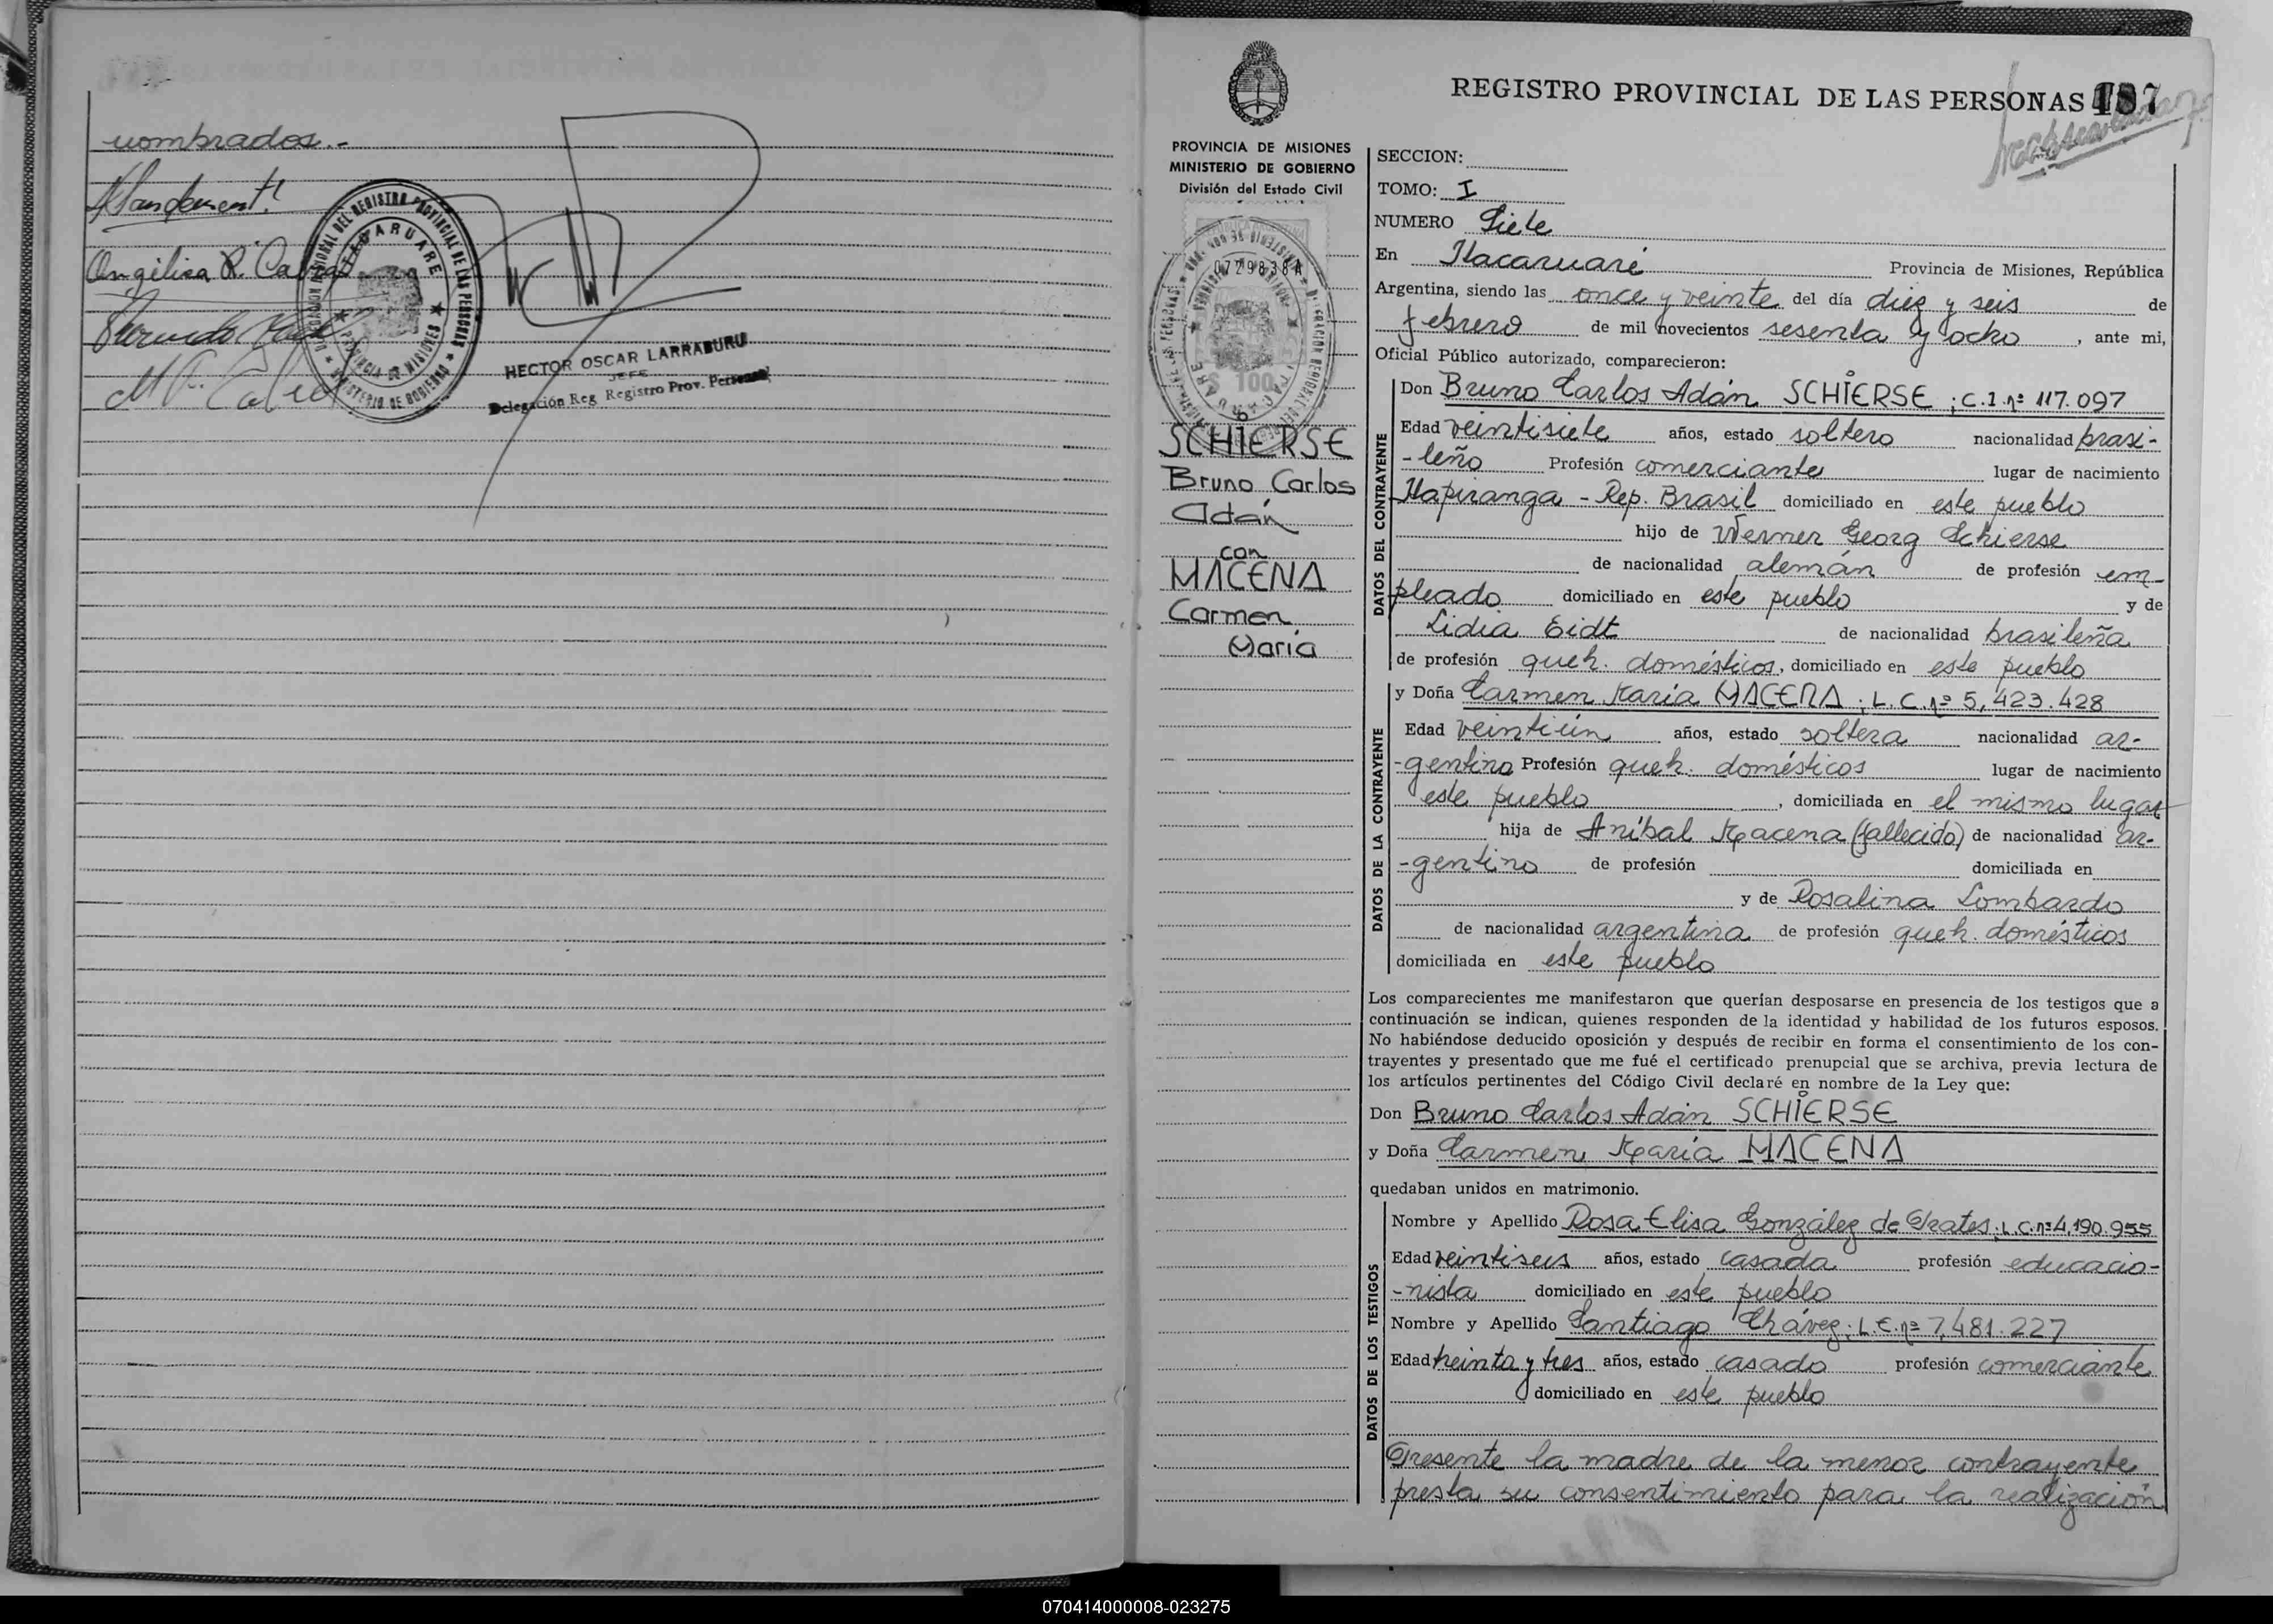 nombrados.-
Angélica R. Cabral
HECTOR OSCAR LARRABURU
JEFE
Delegación Reg. Registro Prov. Personas
REGISTRO PROVINCIAL DE LAS PERSONAS 187
PROVINCIA DE MISIONES
MINISTERIO DE GOBIERNO
División del Estado Civil
0729838A
$ 100
SCHIERSE
Bruno Carlos
Adán
con
MACENA
Carmen
María
SECCION:
TOMO: I
NUMERO Siete
En Itacaruaré Provincia de Misiones, República
Argentina, siendo las once y veinte del día diez y seis de
febrero de mil novecientos sesenta y ocho, ante mi,
Oficial Público autorizado, comparecieron:
DATOS DEL CONTRAYENTE
Don Bruno Carlos Adán SCHIERSE; C.I. nº 117.097
Edad veintisiete años, estado soltero nacionalidad brasi-
-leño Profesión comerciante lugar de nacimiento
Itapiranga - Rep. Brasil domiciliado en este pueblo
hijo de Werner Georg Schierse
de nacionalidad alemán de profesión em-
pleado domiciliado en este pueblo y de
Lidia Eidt de nacionalidad brasileña
de profesión queh. domésticos, domiciliado en este pueblo
DATOS DE LA CONTRAYENTE
y Doña Carmen María MACENA; L.C. nº 5,423.428
Edad veintiún años, estado soltera nacionalidad ar-
-gentina Profesión queh. domésticos lugar de nacimiento
este pueblo, domiciliada en el mismo lugar
hija de Aníbal Macena (fallecido) de nacionalidad ar-
-gentino de profesión domiciliada en
y de Rosalina Lombardo
de nacionalidad argentina de profesión queh. domésticos
domiciliada en este pueblo
Los comparecientes me manifestaron que querían desposarse en presencia de los testigos que a
continuación se indican, quienes responden de la identidad y habilidad de los futuros esposos.
No habiéndose deducido oposición y después de recibir en forma el consentimiento de los con-
trayentes y presentado que me fué el certificado prenupcial que se archiva, previa lectura de
los artículos pertinentes del Código Civil declaré en nombre de la Ley que:
Don Bruno Carlos Adán SCHIERSE
y Doña Carmen María MACENA
quedaban unidos en matrimonio.
DATOS DE LOS TESTIGOS
Nombre y Apellido Rosa Elisa González de Prates; L.C. nº 4,190.955
Edad veintiseis años, estado casada profesión educacio-
-nista domiciliado en este pueblo
Nombre y Apellido Santiago Chávez; L.E. nº 7,481.227
Edad treinta y tres años, estado casado profesión comerciante
domiciliado en este pueblo
Presente la madre de la menor contrayente
presta su consentimiento para la realización
070414000008-023275